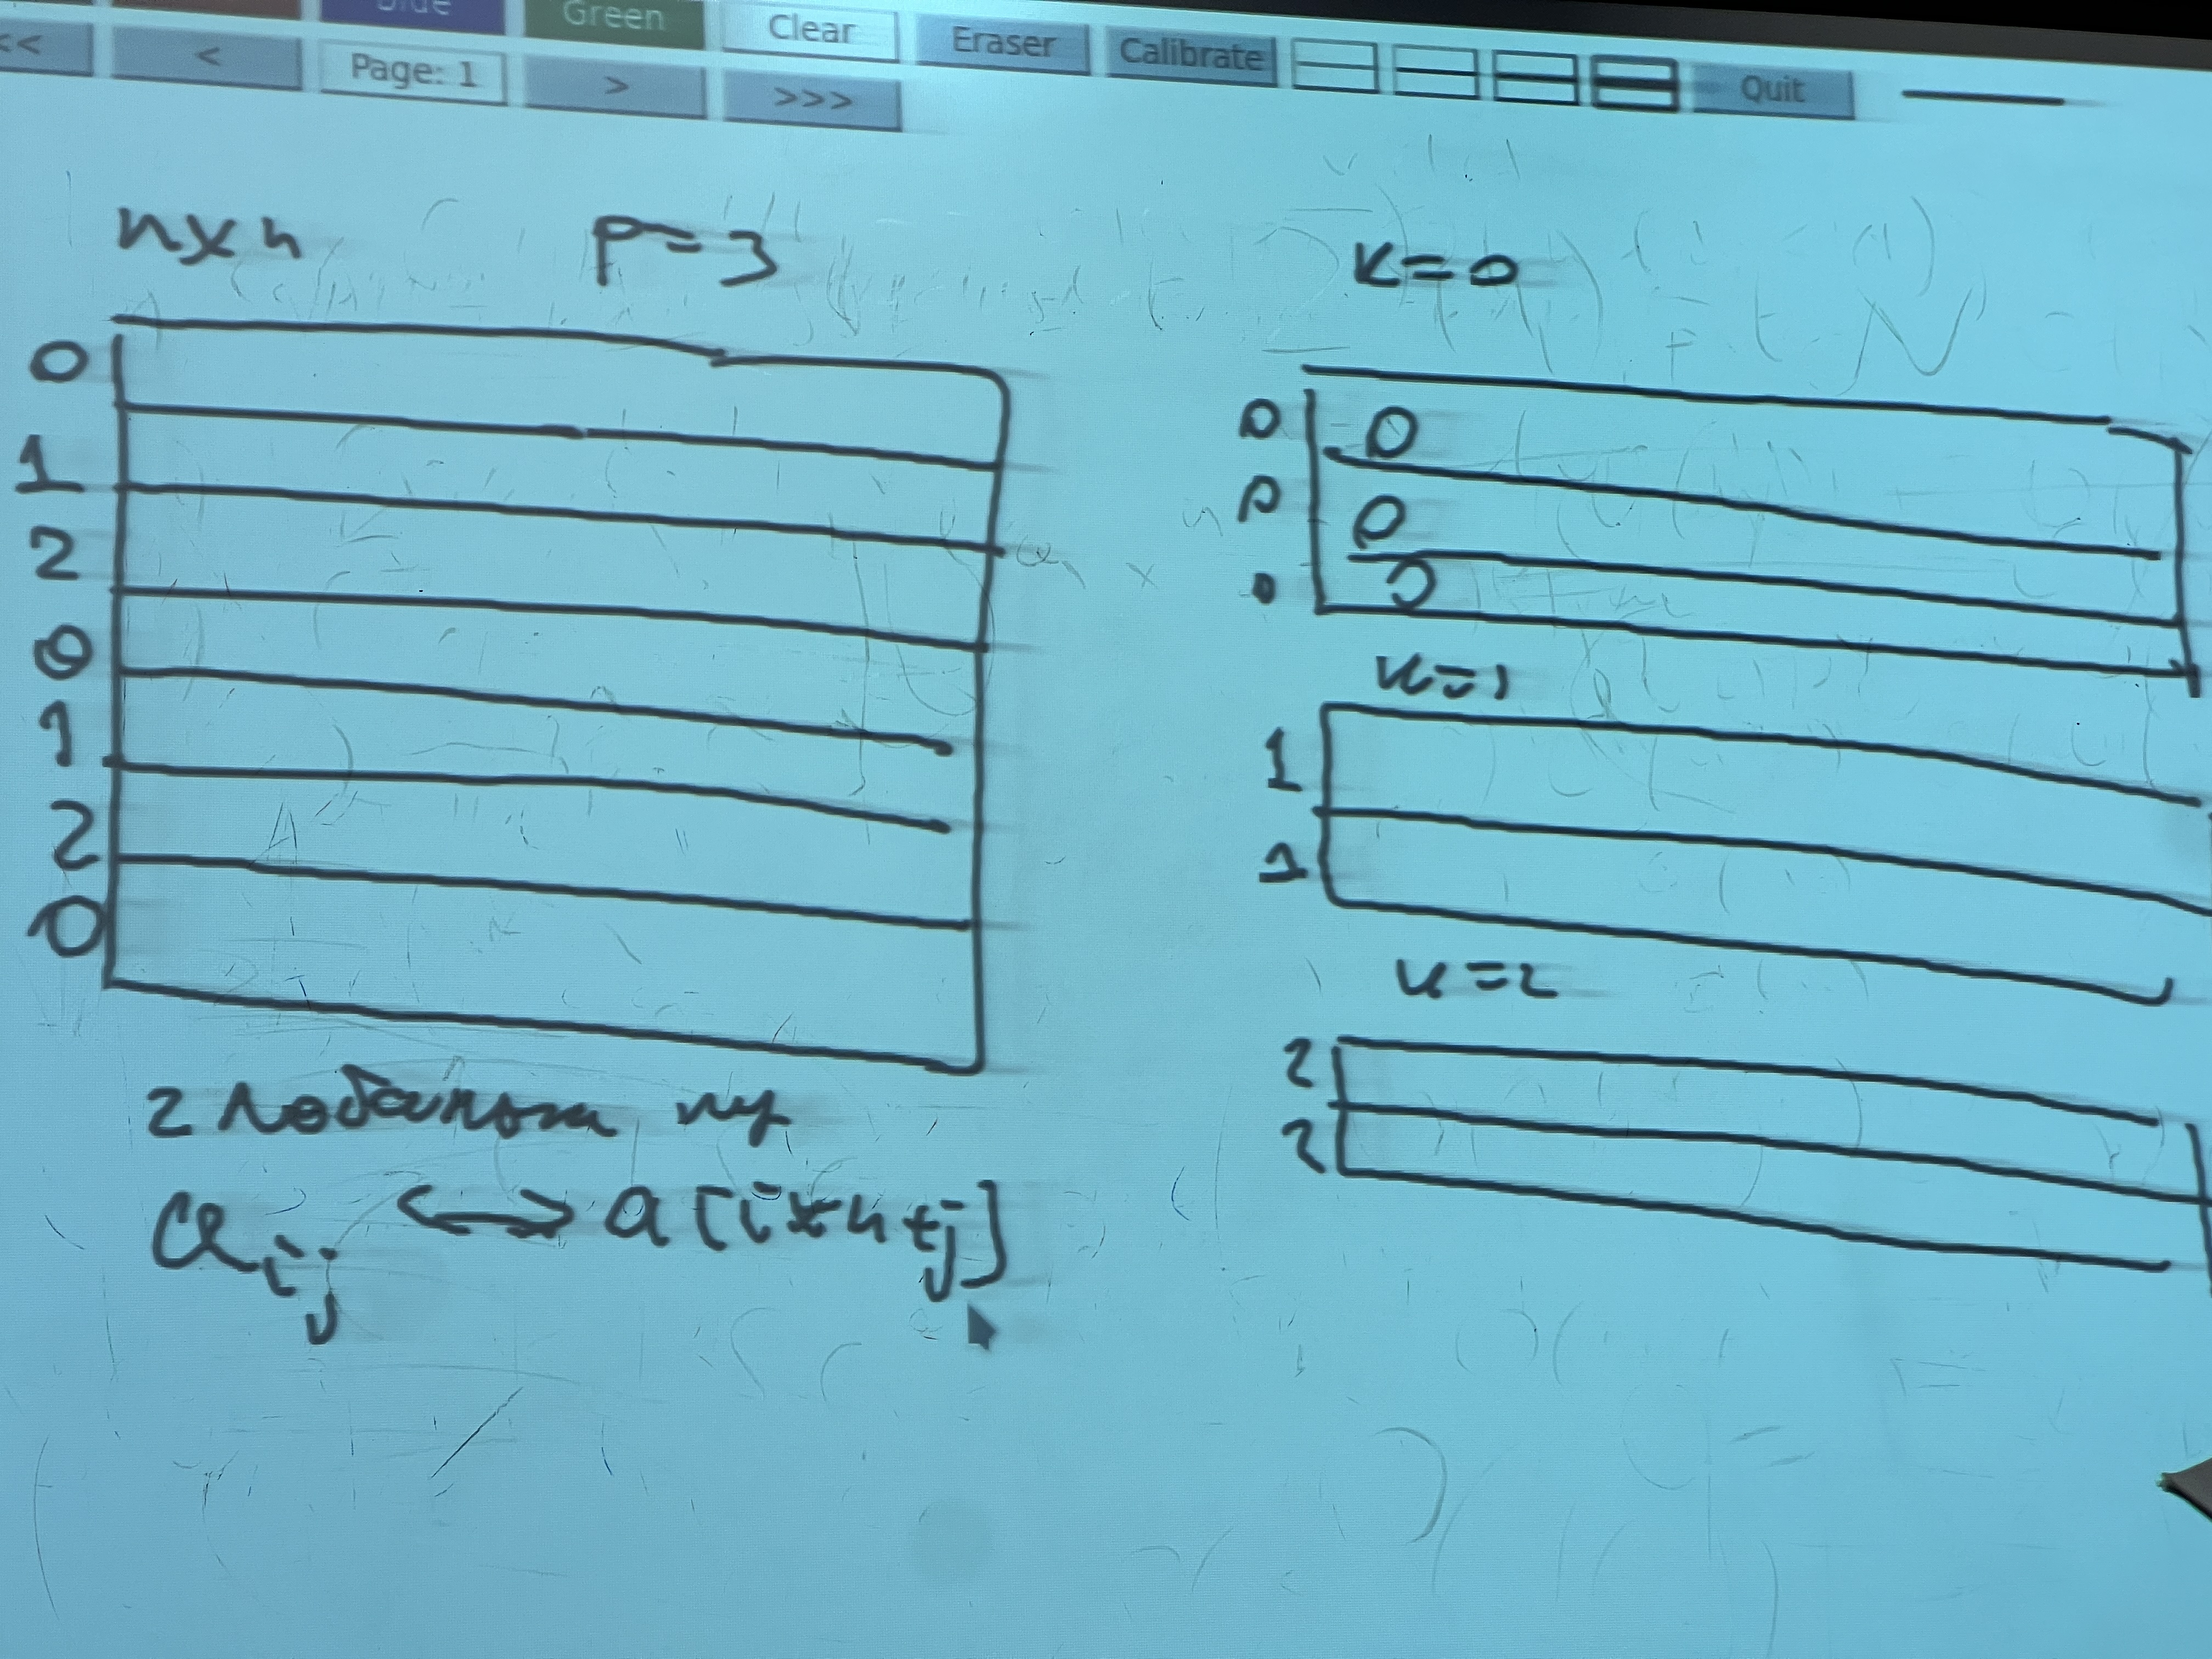 Blue Green Clear Eraser Calibrate Quit
<< < Page: 1 > >>>
n×n p=3
0
1
2
0
1
2
0
a_ij <-> a[i*n+j]
k=0
0 0
0 0
0 0
k=1
1
1
k=2
2
2